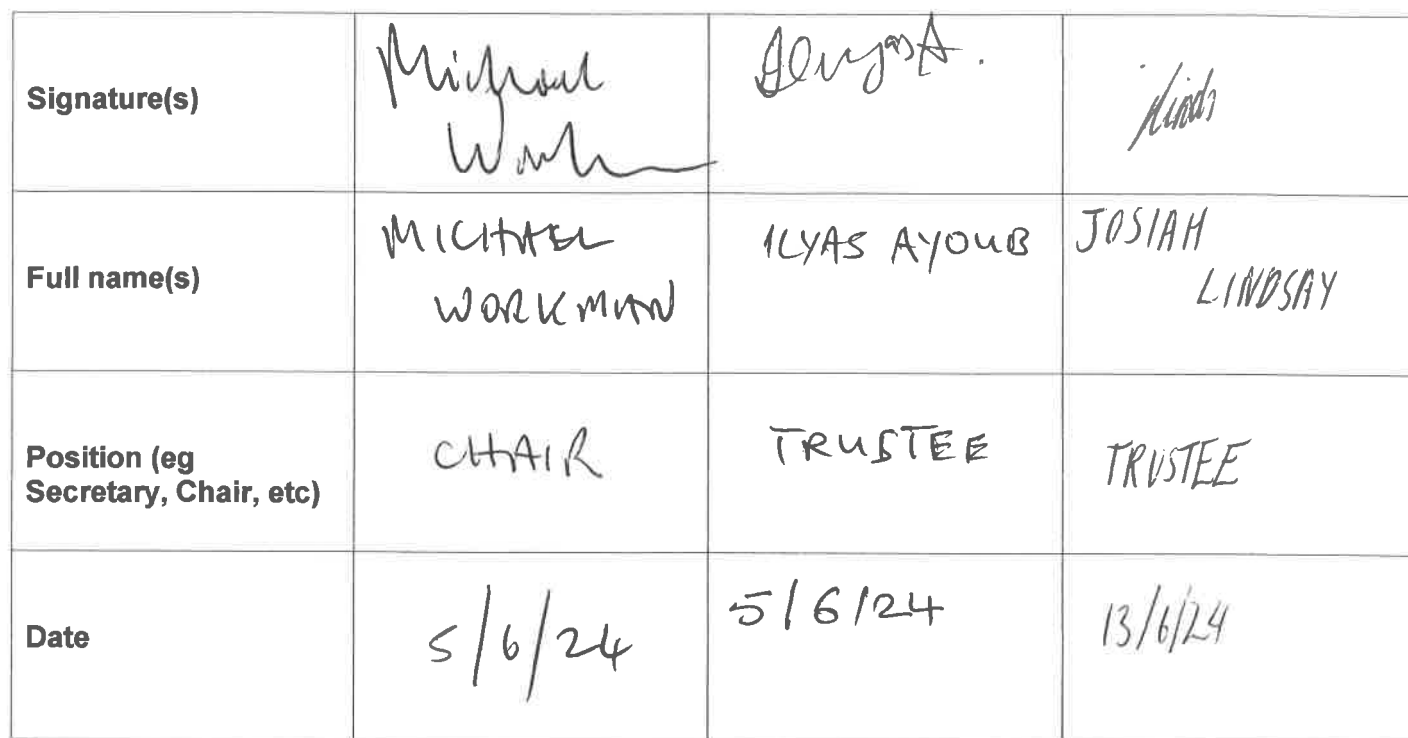 Signature(s)
Michael
Work
IlyasA.
Linds
Full name(s)
MICHAEL
WORKMAN
ILYAS AYOUB
JOSIAH
LINDSAY
Position (eg
Secretary, Chair, etc)
CHAIR
TRUSTEE
TRUSTEE
Date
5/6/24
5/6/24
13/6/24